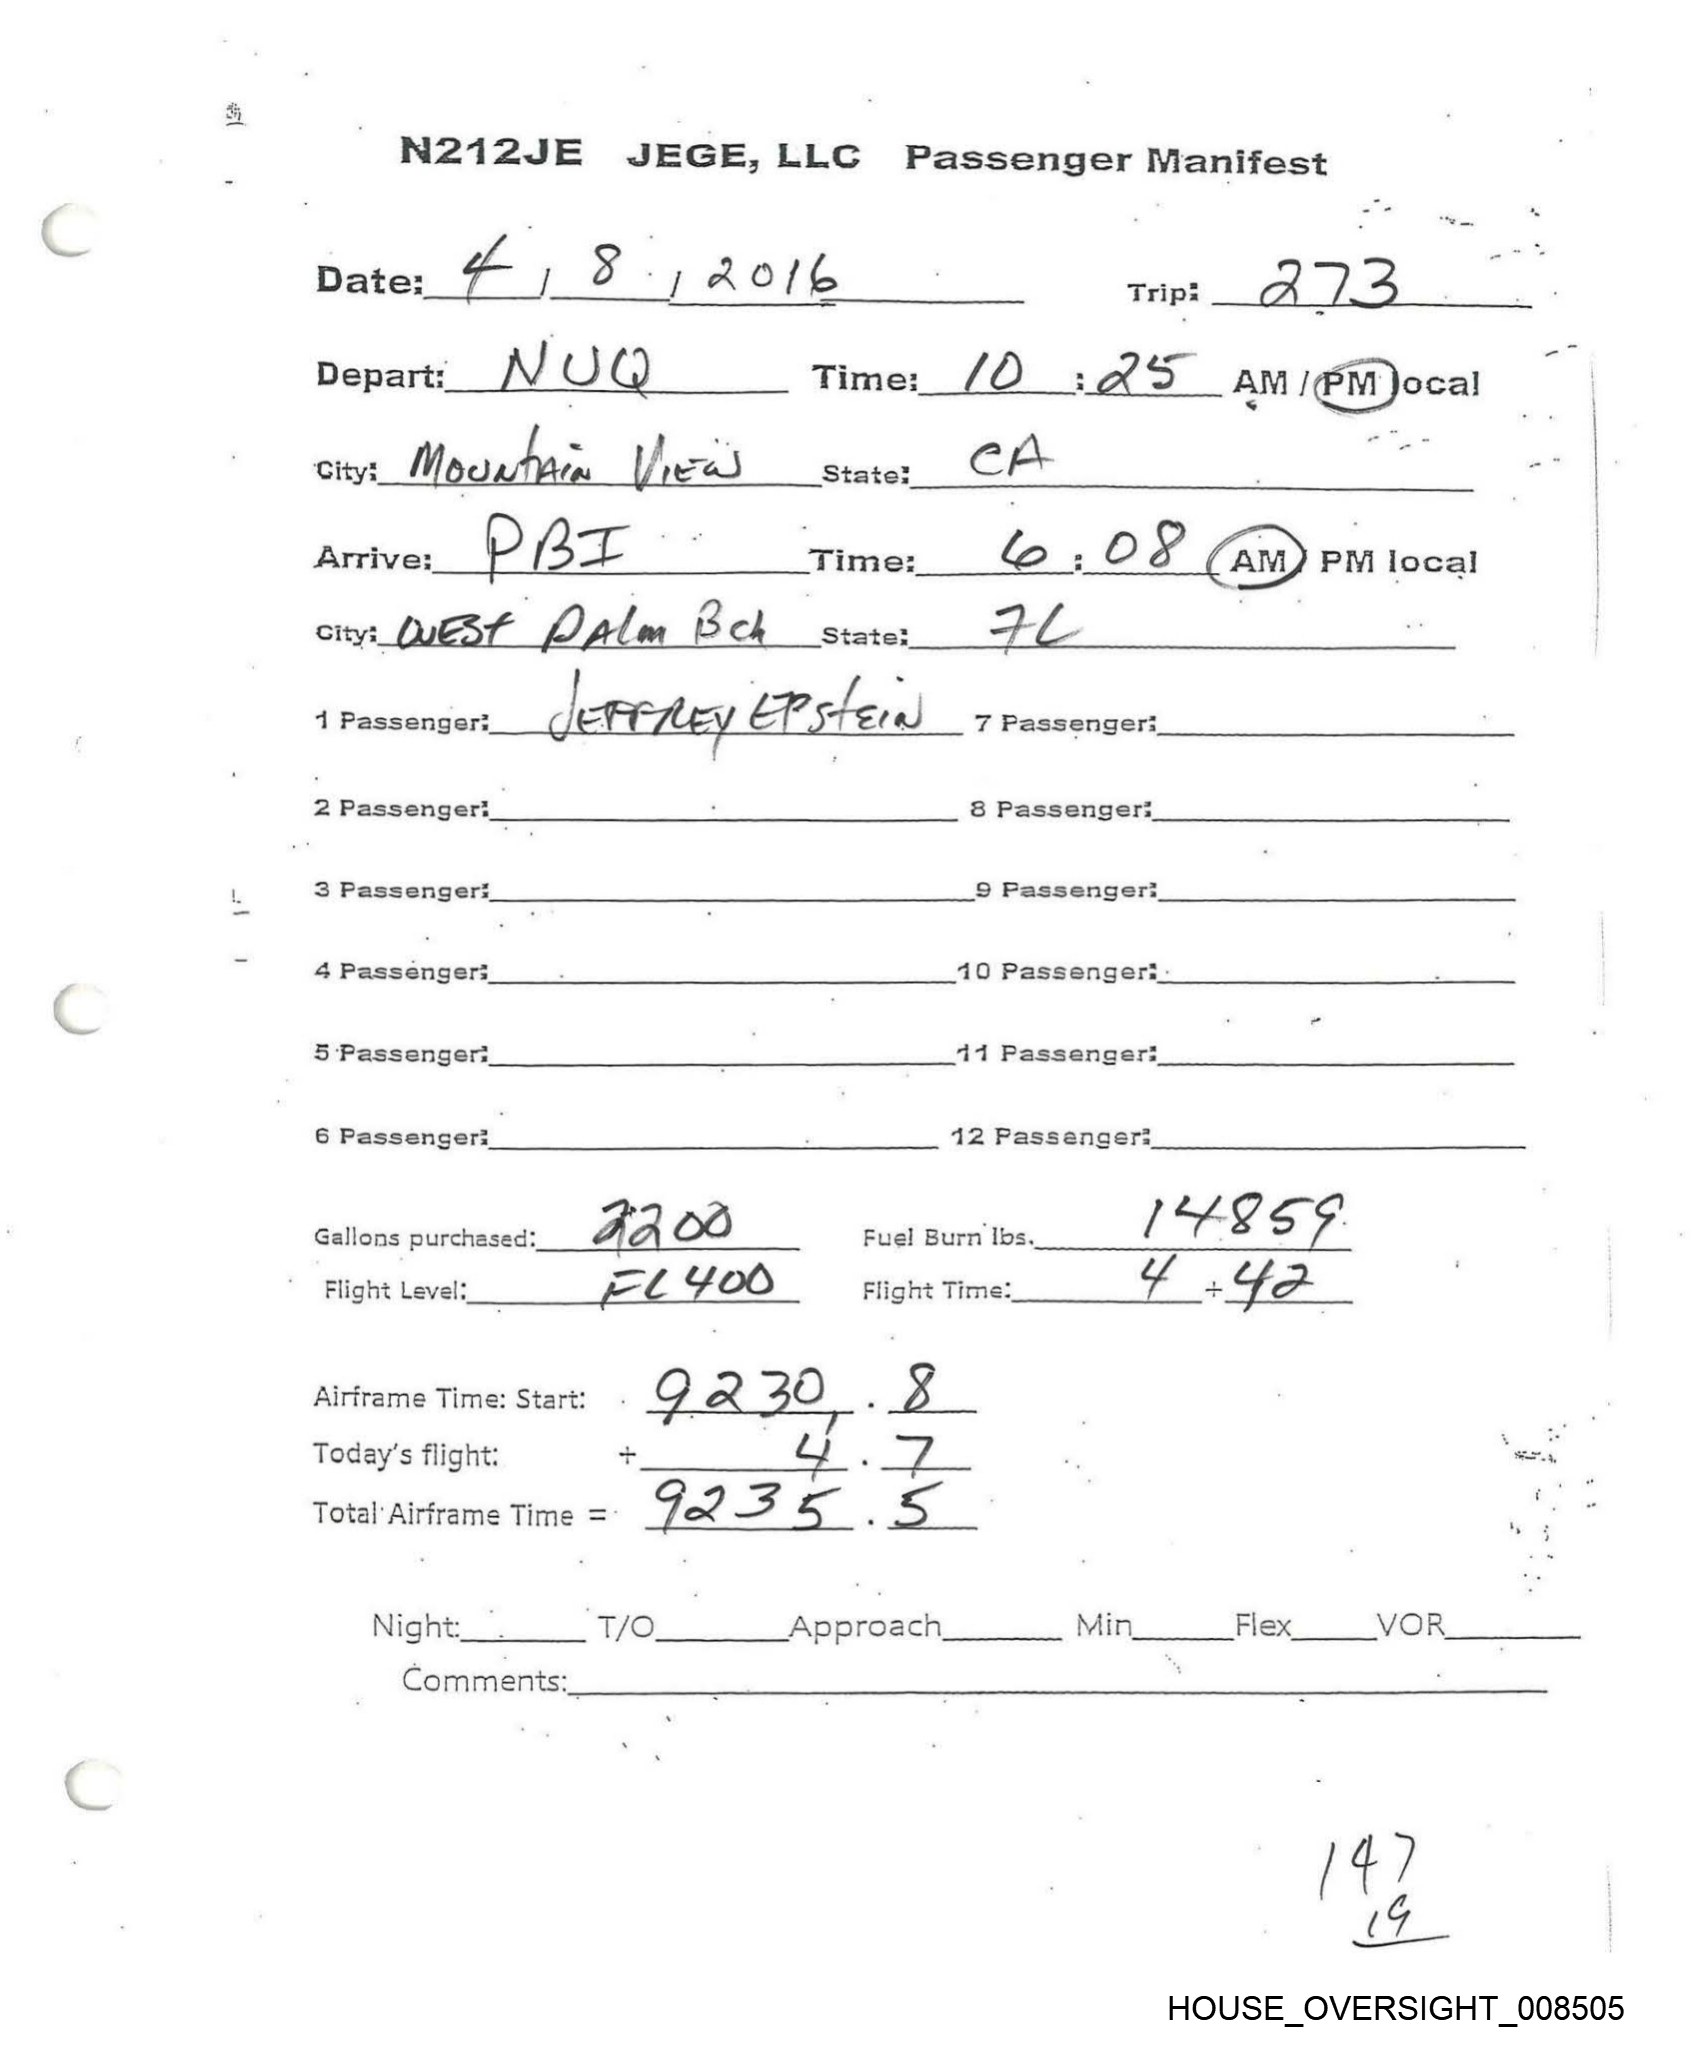 N212JE JEGE, LLC Passenger Manifest
Date: 4 / 8 / 2016 Trip: 273
Depart: NUQ Time: 10 : 25 AM / PM local
City: Mountain View State: CA
Arrive: PBI Time: 6 : 08 AM / PM local
City: West Palm Bch State: FL
1 Passenger: Jeffrey Epstein 7 Passenger:
2 Passenger: 8 Passenger:
3 Passenger: 9 Passenger:
4 Passenger: 10 Passenger:
5 Passenger: 11 Passenger:
6 Passenger: 12 Passenger:
Gallons purchased: 2200 Fuel Burn lbs. 14859
Flight Level: FL400 Flight Time: 4 + 42
Airframe Time: Start: 9230 . 8
Today's flight: + 4 . 7
Total Airframe Time = 9235 . 5
Night: T/O Approach Min Flex VOR
Comments:
147
19
HOUSE_OVERSIGHT_008505